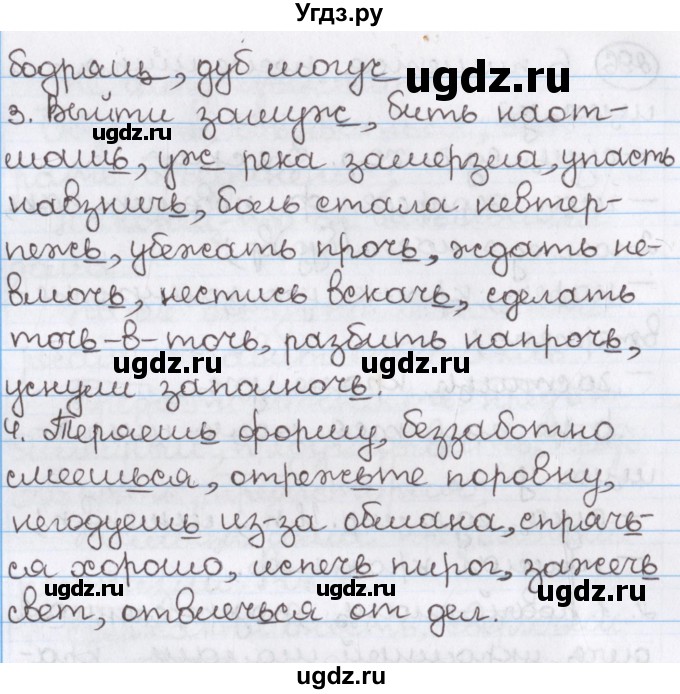 Угдз.ру
бодрящ, дуб могуч
угдз.ру
3. Выйти замуж, бить наот-
ugdz.ru
машь, уж река замерзла, упасть
навзничь, боль стала невтер-
пежь, убежать прочь, ждать не-
вмочь, нестись вскачь, сделать
точь-в-точь, разбить напрочь,
ugdz.ru ugdz.ru
уснули заполночь.
4. Теряешь форму, беззаботно
смеешься, отрежьте поровну,
негодуешь из-за обмана, спрячь-
ся хорошо, испечь пирог, зажечь
ugdz.ru ugdz.ru
свет, отвлечься от дел.
©ugdz.ru